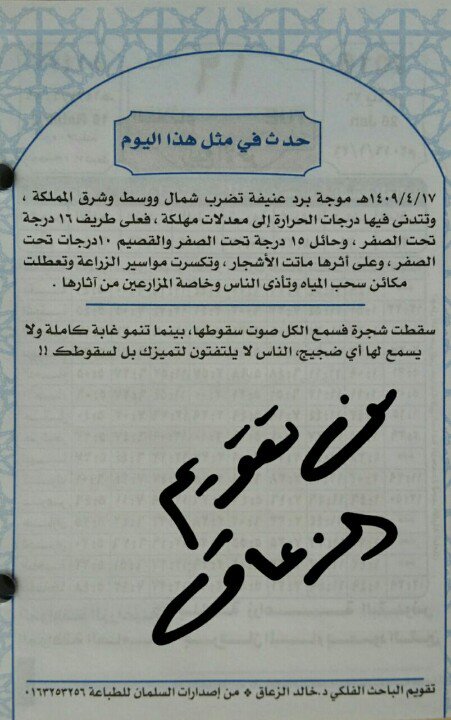 حدث في مثل هذا اليوم
١٤٠٩/٤/١٧هـ موجة برد عنيفة تضرب شمال ووسط وشرق المملكة ،
وتتدنى فيها درجات الحرارة إلى معدلات مهلكة ، فعلى طريف ١٦ درجة
تحت الصفر ، وحائل ١٥ درجة تحت الصفر والقصيم ١٠درجات تحت
الصفر ، وعلى أثرها ماتت الأشجار ، وتكسرت مواسير الزراعة وتعطلت
مكائن سحب المياه وتأذى الناس وخاصة المزارعين من آثارها .
سقطت شجرة فسمع الكل صوت سقوطها، بينما تنمو غابة كاملة ولا
يسمع لها أي ضجيج، الناس لا يلتفتون لتميزك بل لسقوطك !!
من تقويم
الزعاق
تقويم الباحث الفلكي د.خالد الزعاق * من إصدارات السلمان للطباعة ٠١٦٣٢٥٣٢٥٦